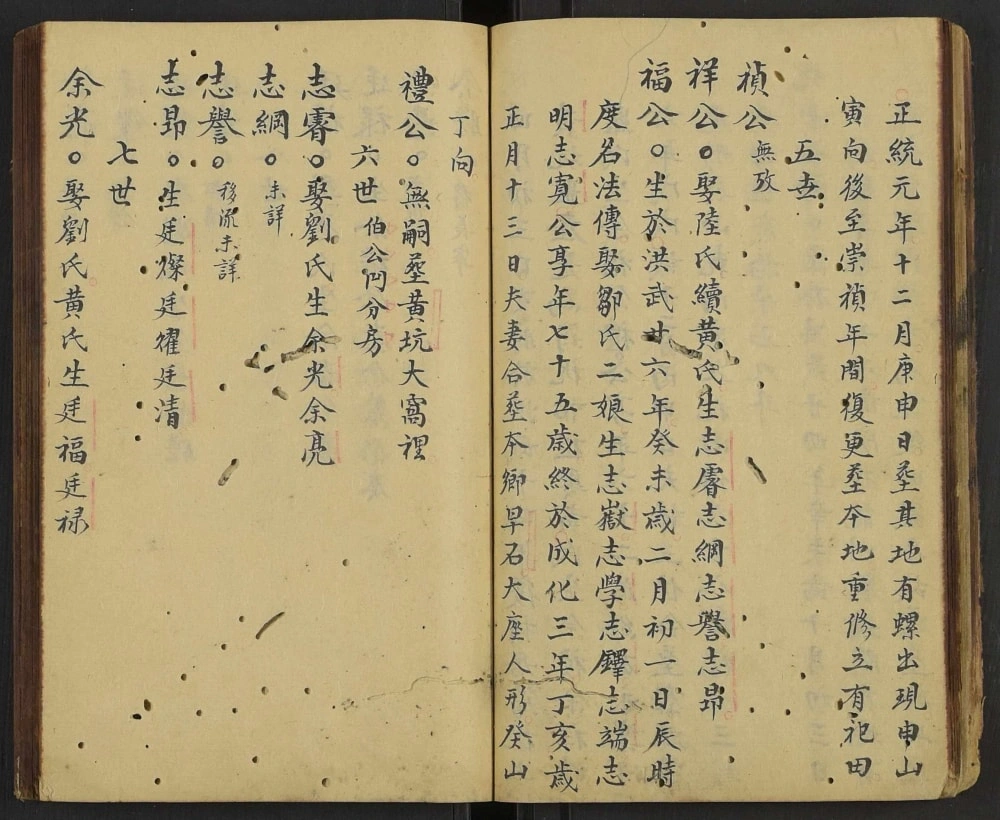 正統元年十二月庚申日塟其地有螺出現申山
寅向後至崇禎年間復更塟本地重修立有祀田
五世
禎公無攷
祥公。娶陸氏續黃氏生志㢞志綱志譽志昂
福公。生於洪武廿六年癸未歲二月初一日辰時
度名法傳娶鄒氏二娘生志嶽志學志鐸志端志
明志寬公享年七十五歲終於成化三年丁亥歲
正月十三日夫妻合塟本鄉旱石大座人形癸山
丁向
禮公。無嗣塟黃坑大窩裡
六世伯公門分房
志㢞。娶劉氏生余光余亮
志綱。未詳
志譽。移流未詳
志昂。生廷燦廷耀廷清
七世
余光。娶劉氏黃氏生廷福廷祿